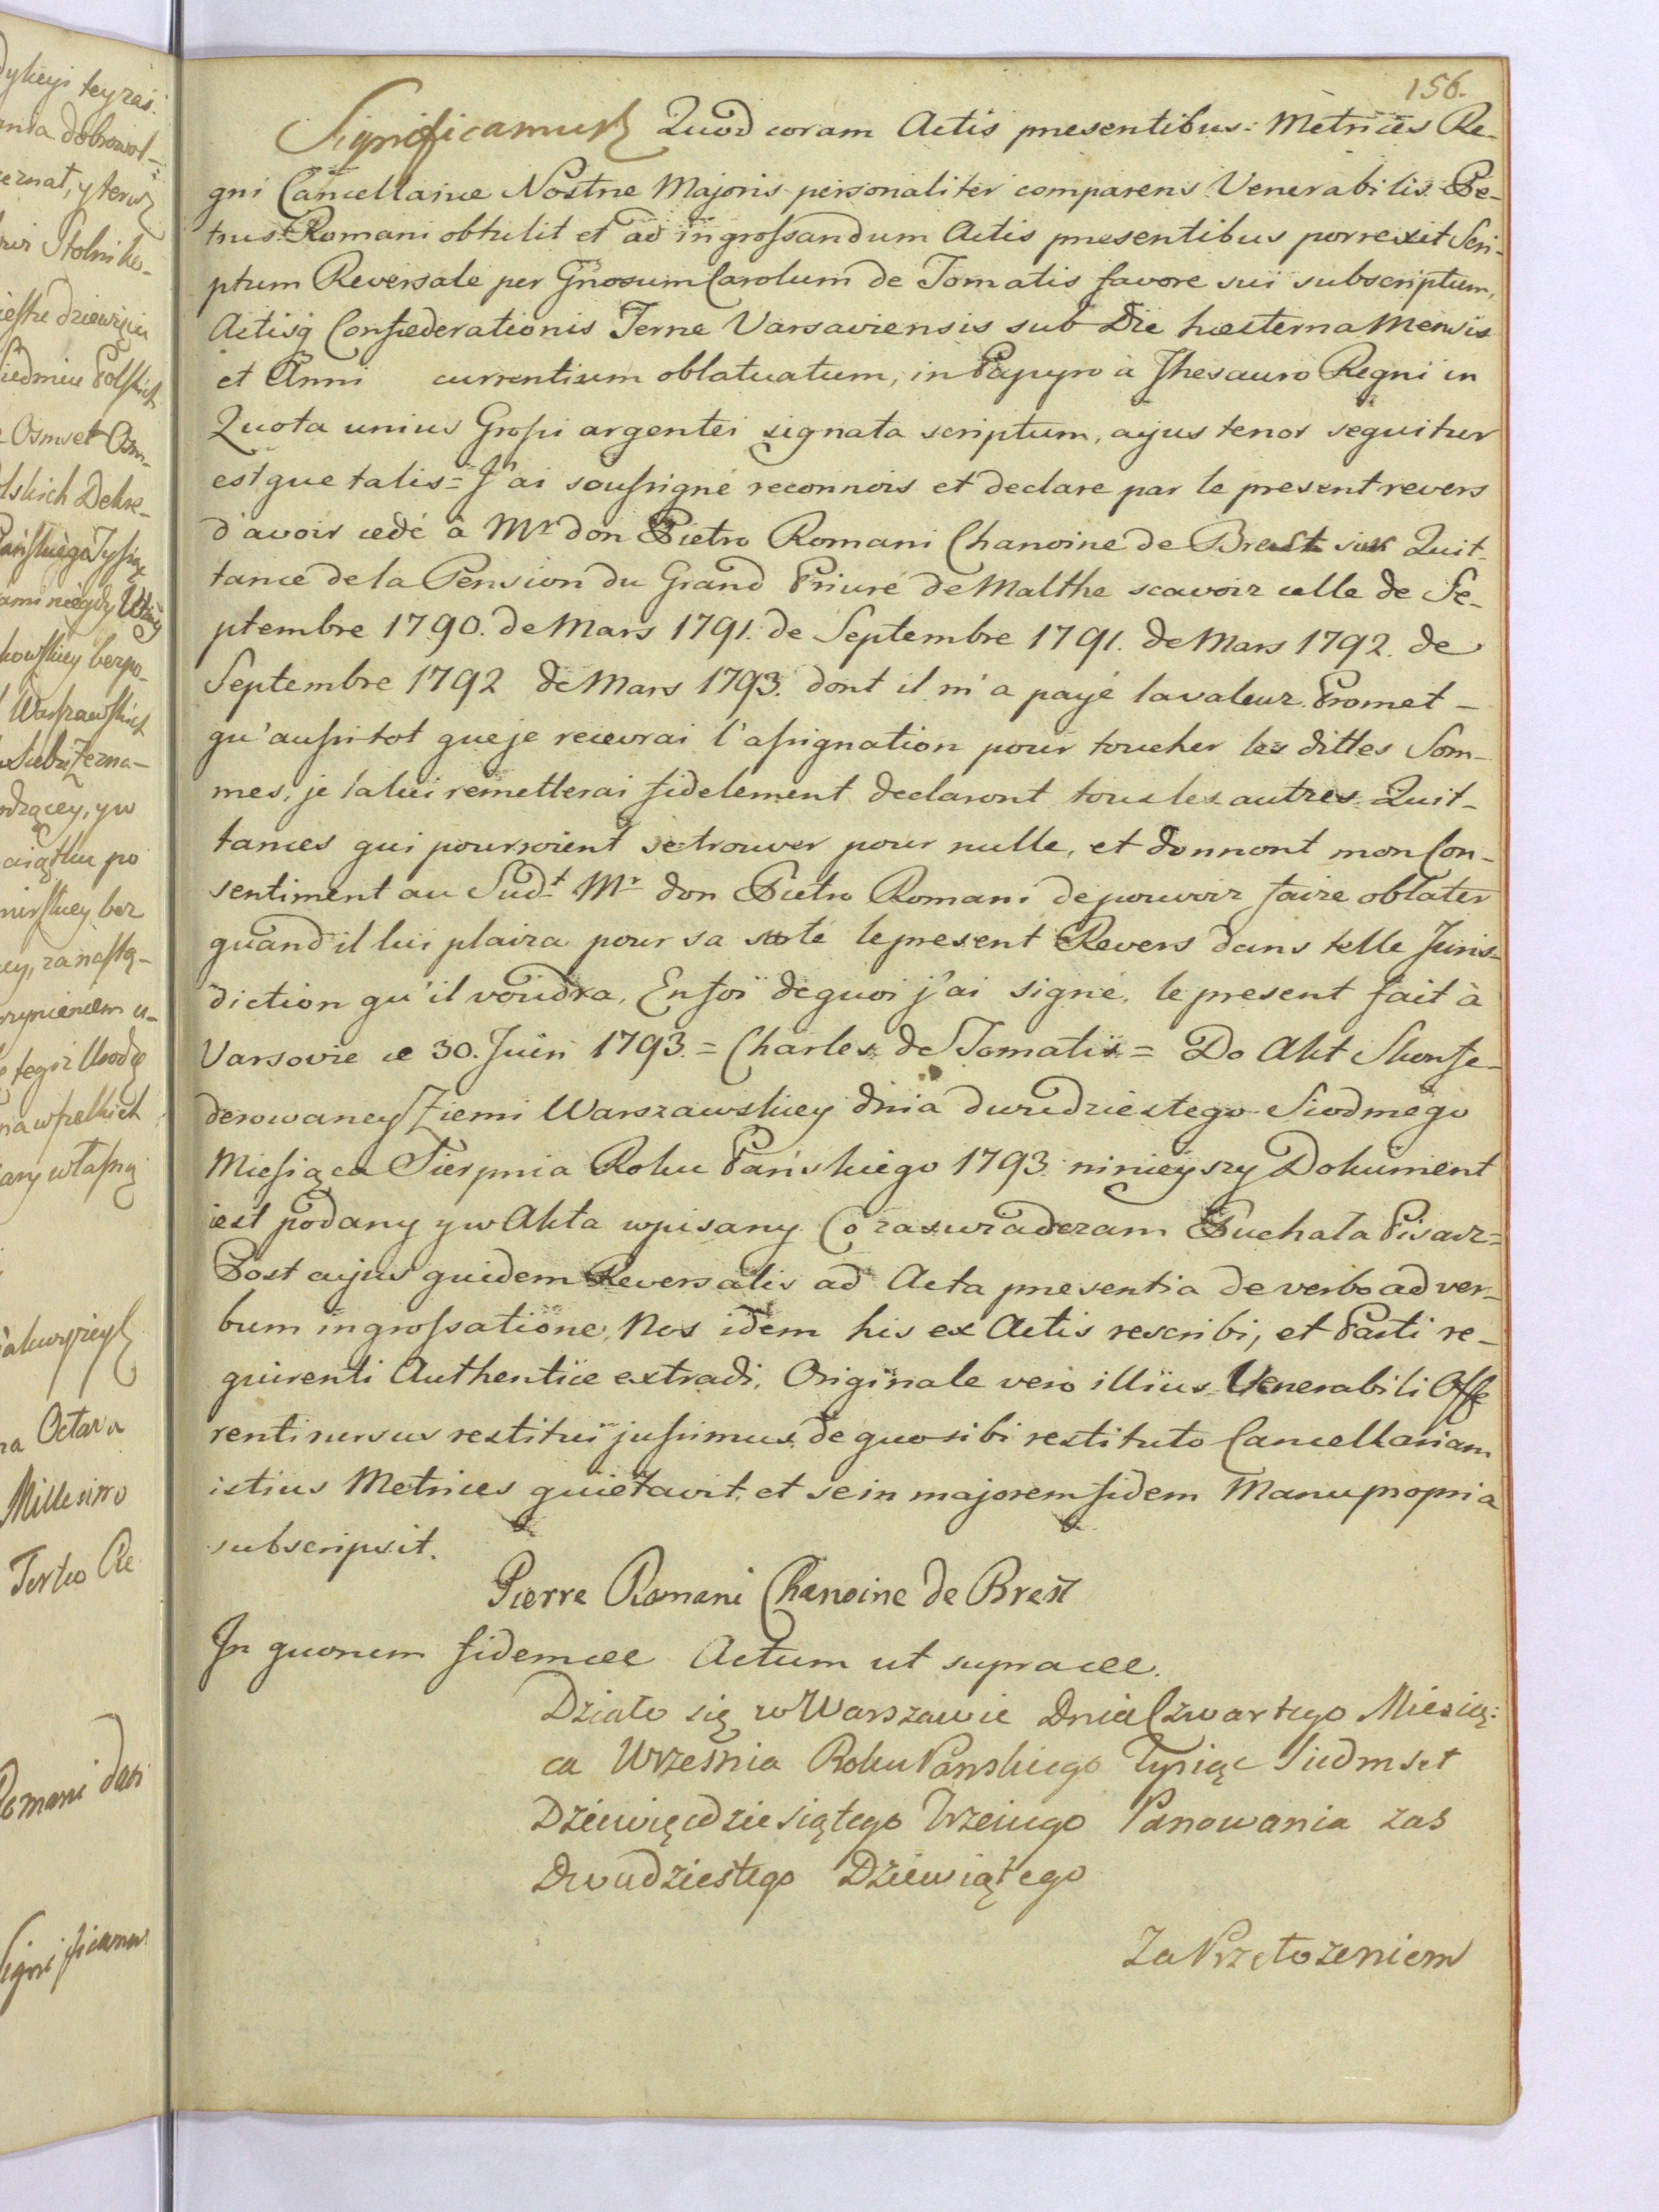 156.
Significamus Quod coram Actis præsentibus: Metrices Re-
gni Cancellariæ Nostræ Majoris personaliter comparens Venerabilis Pe-
trus Romani obtulit et ad ingrossandum Actis præsentibus porrexit Scri-
ptum Reversale per Gnosum Carolum de Tomatis favore sui subscriptum,
Actisq Confæderationis Terræ Varsaviensis sub Die hæsterna Mensis
et Anni currentium oblatuatum, in Papyro à Thesauro Regni in
Quota unius Grossi argentei signata scriptum, cujus tenor sequitur
estque talis = J'ai soussigné reconnois et declare par le present revers
d'avoir cedé à Mr don Pietro Romani Chanoine de Brest six Quit-
tance de la Pension du Grand Priuré de Malthe scavoir celle de Se-
ptembre 1790. de Mars 1791. de Septembre 1791. de Mars 1792. de
Septembre 1792 de Mars 1793. dont il m'a payé la valeur. Promet-
qu'aussitot que je recevrai l'assignation pour toucher les dittes Som-
mes, je la lui remetterai fidelement declaront tous les autres Quit-
tances qui pourroient se trouver pour nulle, et donnont mon Con-
sentiment au Sudt Mr don Pietro Romani de pouvoir faire oblater
quand il lui plaira pour sa sœrté le present Revers dans telle Juris-
diction qu'il voudra, En foi de quoi j'ai signé, le present fait à
Varsovie ce 30. Juin 1793. = Charles de Tomatis = Do Akt Skonfe-
derowaney Ziemi Warszawskiey dnia dwudziestego Siodmego
Miesiąca Sierpnia Roku Pańskiego 1793 ninieyszy Dokument
iest podany y w Akta wpisany Co zaświadczam Puchała Pisarz =
Post cujus quidem Reversalis ad Acta præsentia de verbo ad ver-
bum ingrossatione, Nos idem his ex Actis rescribi, et Parti re-
quirenti Authentice extradi, Originale vero illius Venerabili Offe
renti rursus restitui jussimus, de quo sibi restituto Cancellariam
istius Metrices quietavit, et se in majorem fidem Manu propria
subscripsit.
Pierre Romani Chanoine de Brest
In quorum fidem &c Actum ut supra &c.
Działo się w Warszawie Dnia Czwartego Miesią:
ca Września Roku Panskiego Tysiąc Siedmset
Dziewięcdziesiątego Trzeciego Panowania zas
Dwudziestego Dziewiątego
Za Przełożeniem